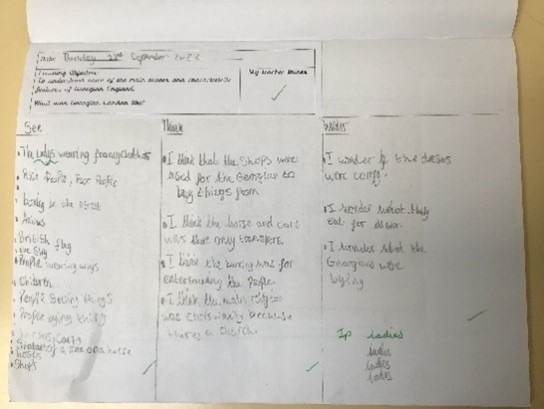 Thursday 22nd September 2022
Learning Objective:
To understand some of the main and characteristic
features of Georgian England.
What was Georgian London like?
My teacher thinks
✓
See
• The ladys wearing fancy clothes
• Rich People, Poor People
• boxing in the street
•
• British flag
• People wearing wigs
• Children
• People Selling things
• People bying things
• a man on a horse
• Shops
Think
• I think that the shops were
used for the Georgian to
buy things from
• I think the horse and cart
was their only transport.
• I think the boxing was for
entertaining the People
• I think the main religion
was Christianity because
theres a church.
Wonder
• I wonder if the dresses
were comfy.
• I wonder what they
eat for
• I wonder what the
Georgians were
bying
Sp ladies
ladies
ladies
ladies